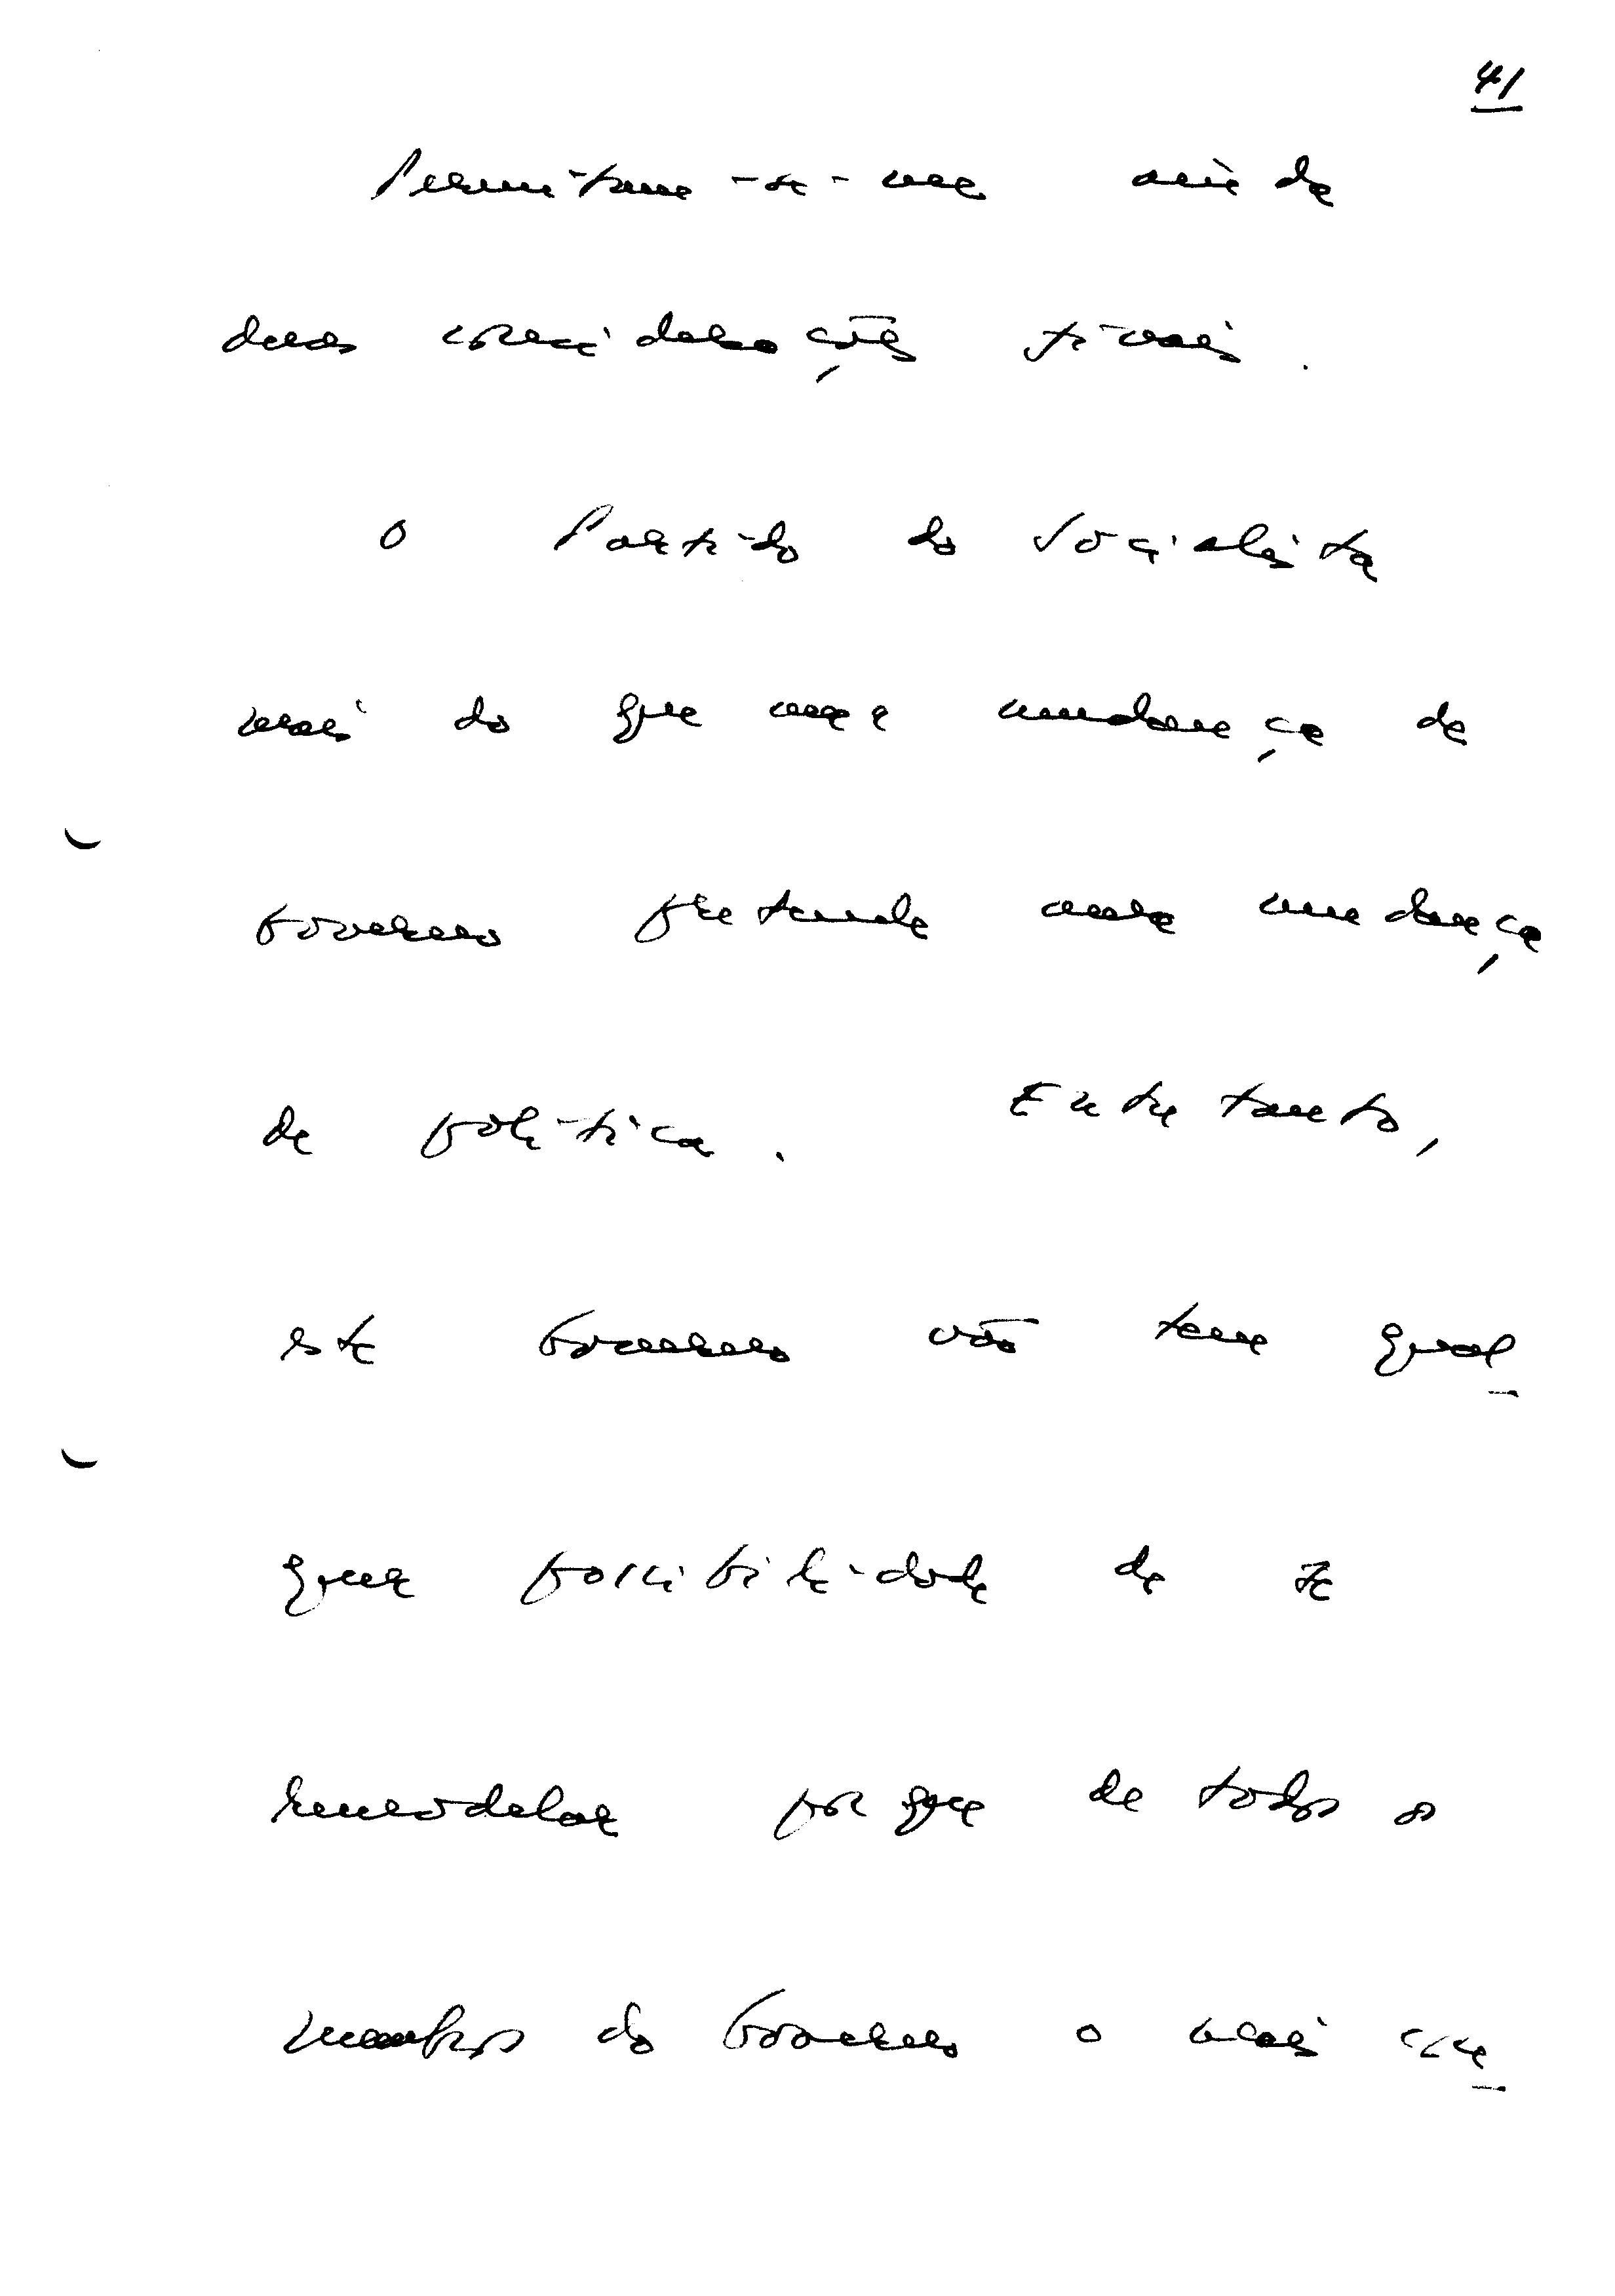 41
Permitam-se-me ainda
duas considerações finais.
O Partido do Socialista
mais do que uma mudança de
Governo pretende uma mudança
de política. Entretanto,
este Governo não tem qual_
quer possibilidade de se
remodelar porque de todos os
membros do Governo o mais